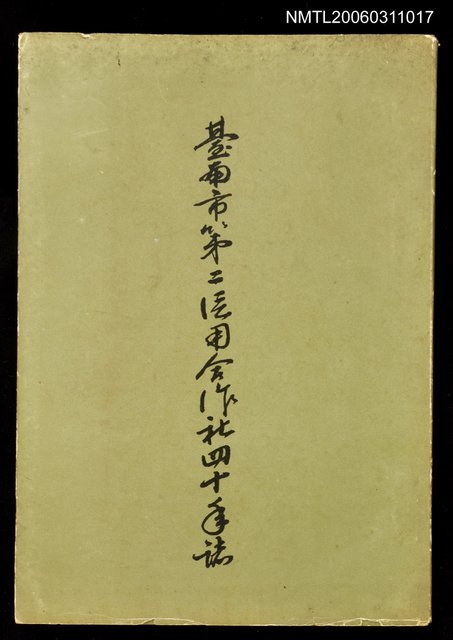 NMTL20060311017
臺南市第二信用合作社四十年誌